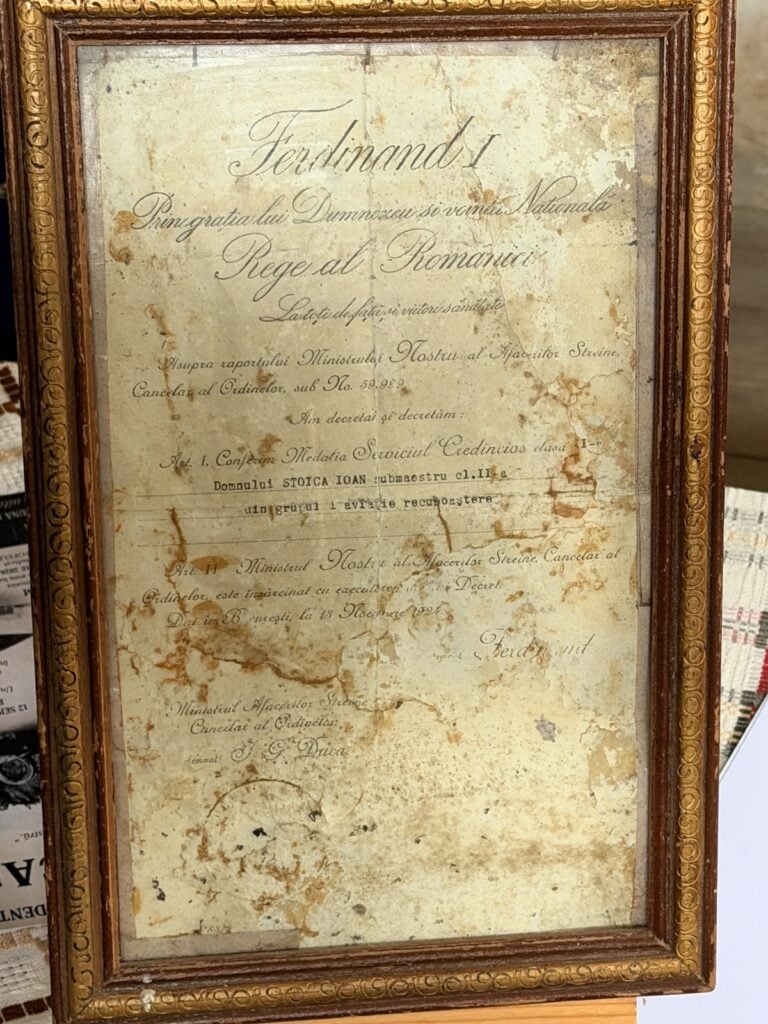 Ferdinand I
Prin gratia lui Dumnezeu si vointa Natională
Rege al Romaniei
La toți de față și viitori sănătate
Asupra raportului Ministrului Nostru al Afacerilor Streine,
Cancelar al Ordinelor, sub No. 59.989
Am decretat și decretăm:
Art. I. Conferim Medalia Serviciul Credincios clasa II-a
Domnului STOICA IOAN submaestru cl.II-a
din grupul i aviatie recunoastere
Art. II Ministrul Nostru al Afacerilor Streine, Cancelar al
Ordinelor, este însărcinat cu executarea Decret.
Dat în București, la 13 Noemvrie
Ferdinand
Ministrul Afacerilor Streine
Cancelar al Ordinelor,
Semnat: I. G. Duca